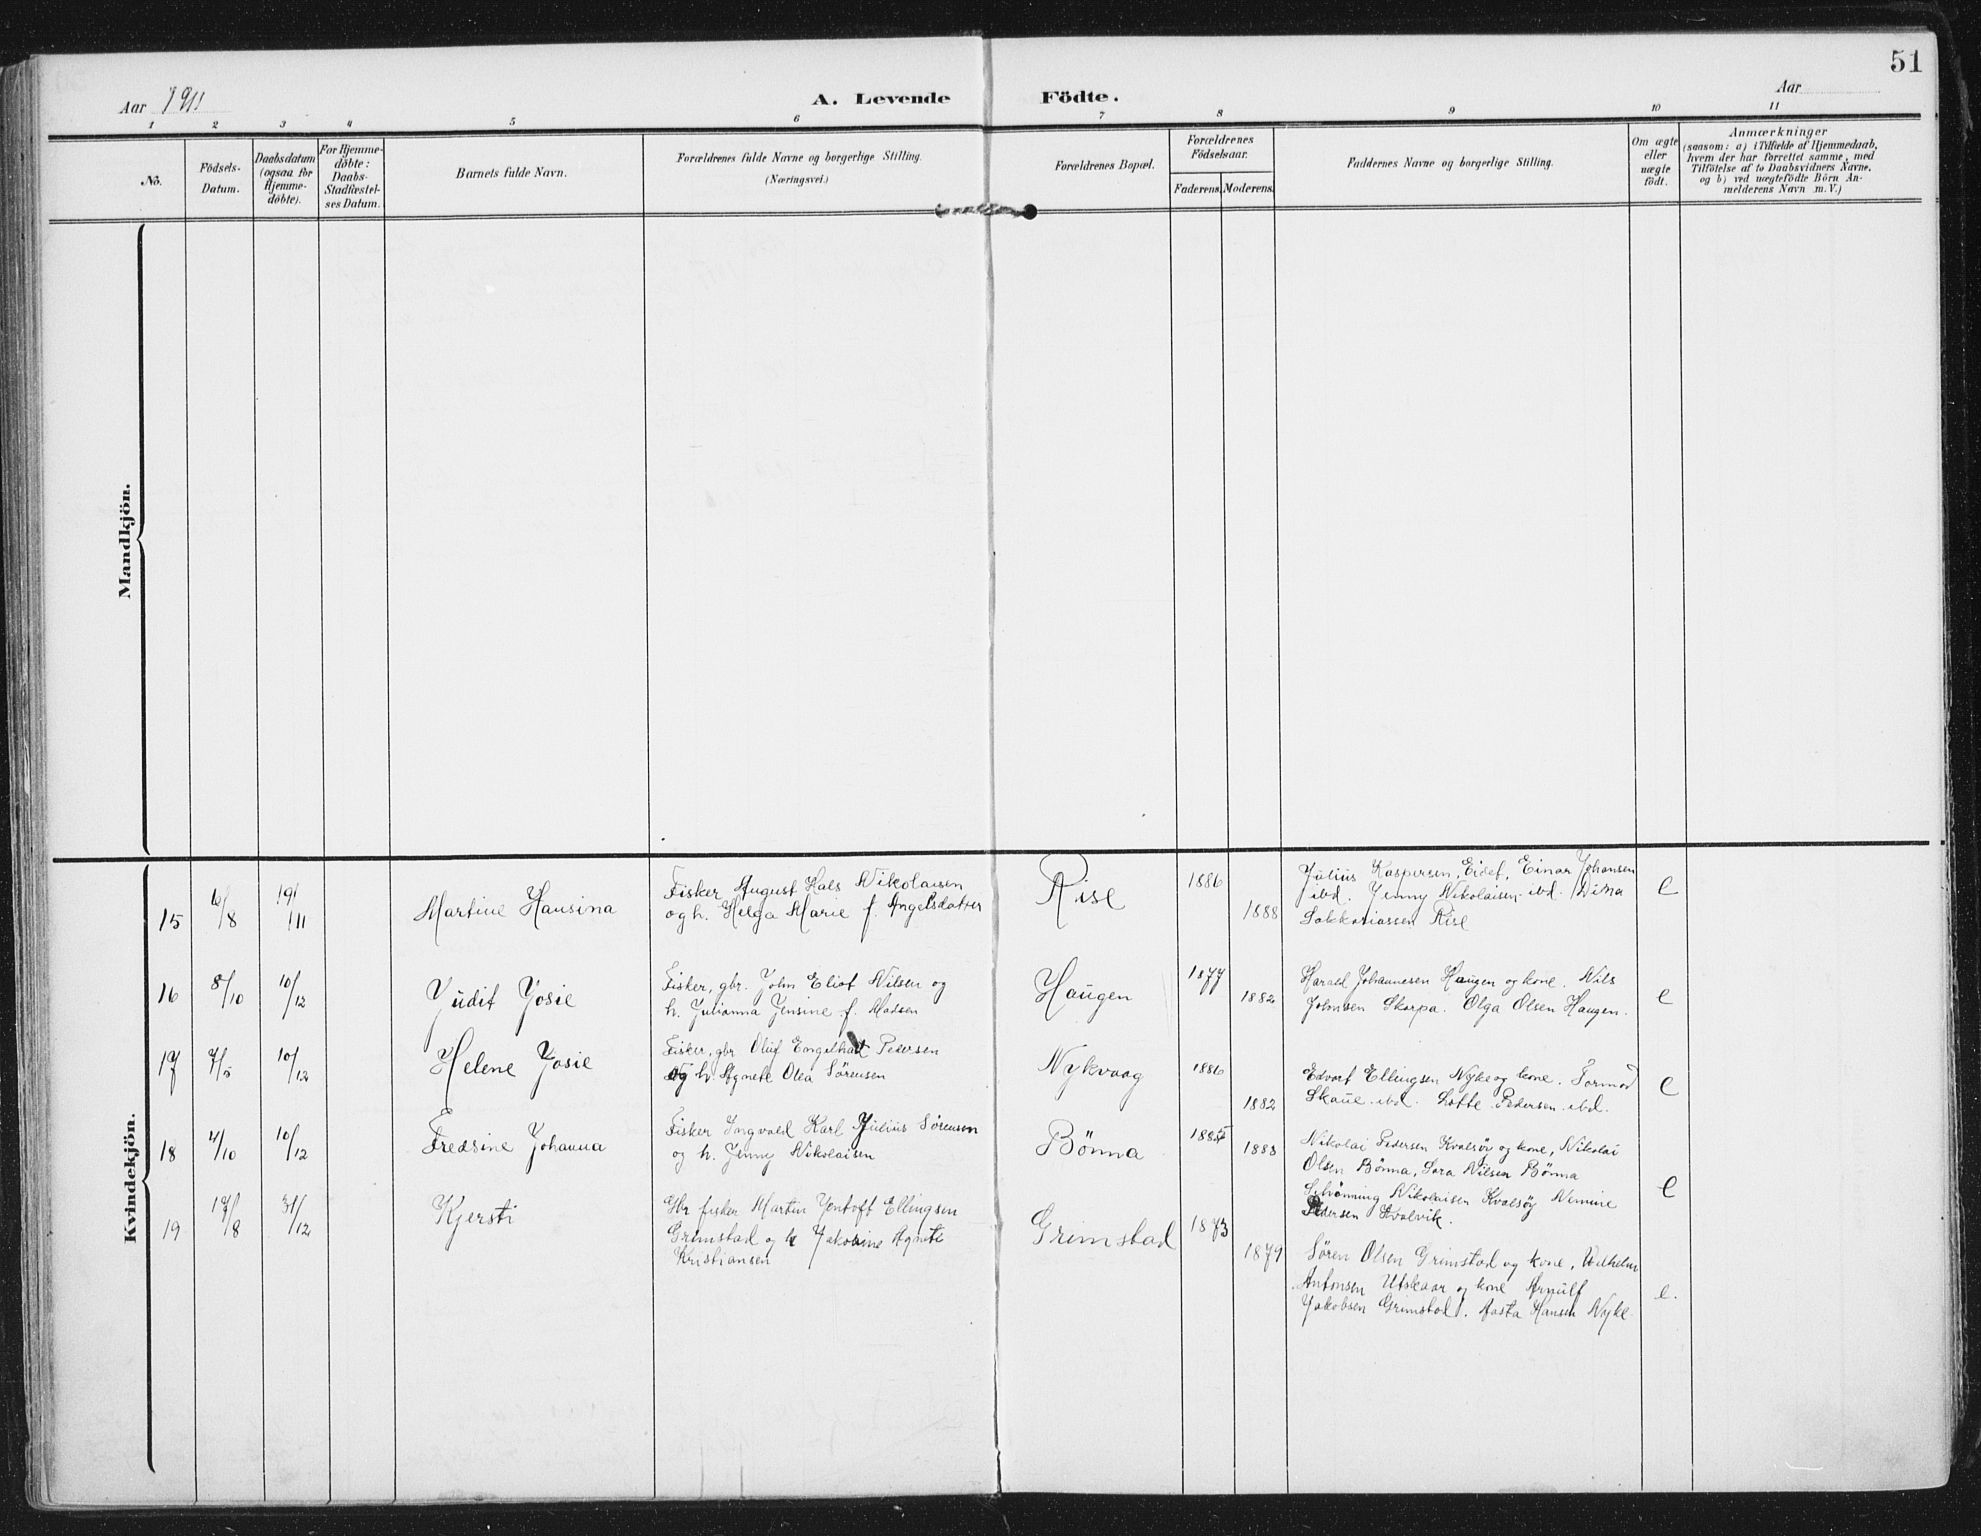 51
Aar 1911
A. Levende Födte.
Aar
1 2 3 4 5 6 7 8 9 10 11
No.
Födsels-
Datum.
Daabsdatum
(ogsaa for
Hjemme-
döbte).
For Hjemme-
döbte:
Daabs-
Stadfæstel-
ses Datum.
Barnets fulde Navn.
Forældrenes fulde Navne og borgerlige Stilling.
(Næringsvei.)
Forældrenes Bopæl.
Forældrenes
Födselsaar.
Faderens. Moderens.
Faddernes Navne og borgerlige Stilling.
Om ægte
eller
uægte
födt.
Anmærkninger
(saasom: a) i Tilfælde af Hjemmedaab,
hvem der har forrettet samme, med
Tilföielse af to Daabsvidners Navne,
og b) ved uægtefödte Börn An-
melderens Navn m. V.)
Mandkjön.
Kvindekjön.
15 /8 19/11
Martine Hansina
Fisker August Hals Nikolaisen
og h. Helga Marie f. Angelsdatter
Rise
1886
1888
Julius Kaspersen, Eidet, Einar Johansen
ibd. Jenny Nikolaisen ibd. Dina
Sakkariassen Rise
e
16 8/10 10/12
Judit Josie
Fisker, gbr. John Eliot Nilsen og
h. Julianna Jensine f. Madsen
Haugen
1877
1882
Harael Johannesen Haugen og kone. Nils
Johnsen Skarpa. Olga Olsen Haugen.
e
17 7/5 10/12
Helene Josie
Fisker, gbr Oluf Engelhart Pedersen
og h. Agnete Olea Sörensen
Nykvaag
1886
1882
Edvart Ellingsen Nyke og kone. Tormod
Skaue ibd. Lotte Pedersen ibd.
e
18 4/10 10/12
Fredsine Johanna
Fisker Ingvald Karl Julius Sörensen
og h. Jenny Nikolaisen
Bönna
1883
Nikolai Pedersen Kvalsöy og kone, Nikolai
Olsen Bönna, Sara Nilsen Bönna
Schönning Nikolaisen Kvalsöy Nemine
Pedersen Kvalvik.
e
19 17/8 31/12
Kjersti
Gbr fisker Martin Jentoft Ellingsen
Grimstad og h Jakobine Agnete
Kristiansen
Grimstad
1873
1879
Sören Olsen Grimstad og kone, Vilhelm
Antonsen Utskaar og kone Arnulf
Jakobsen Grimstad. Aasta Hansen Nyke
e.